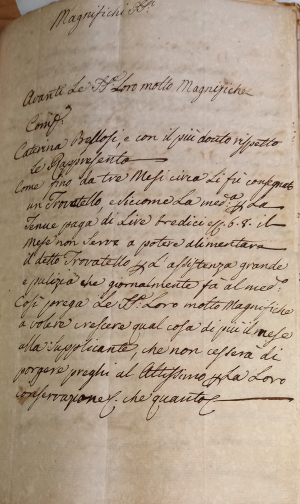 Magnifichi SS.ri
Avanti Le SS.e Loro molto Magnifiche
Comp.e
Caterina Bellosi, e con il più douto rispetto
le Rapresenta
Come fino da tre Mesi circa Li fù consegnato
un Trovatello, e siccome La med.a La
Tenue paga di Lire tredici 6.8. il
Mese non serve a potere alimentare
il detto Trovatello L'asistenza grande
e pulizia che giornalmente fa al med.o
Cosi prega Le SS.e Loro molto Magnifiche
a volere crescere qual cosa di più il mese
alla Supplicante, che non cesserà di
porgere preghi al Altissimo La Loro
conservazione che quanto